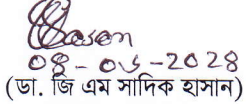 ০৪-০৬-২০২৪
(ডা. জি এম সাদিক হাসান)